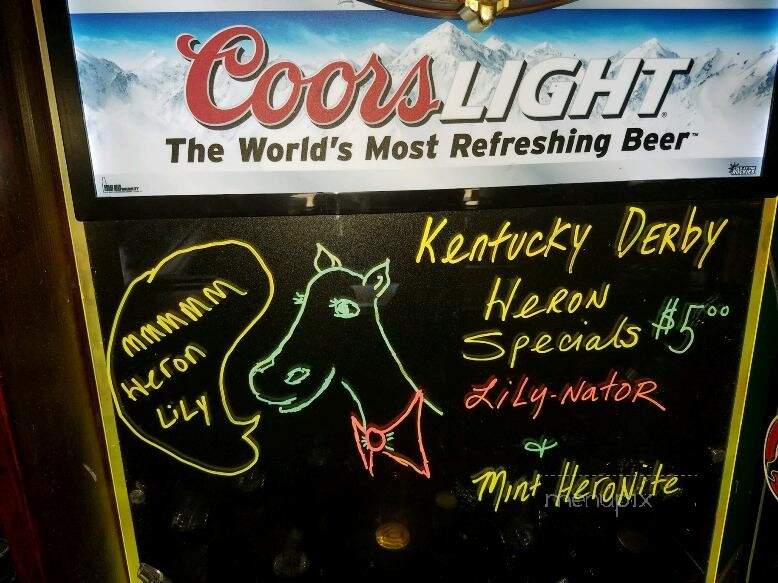 Coors LIGHT
The World's Most Refreshing Beer™
Kentucky DERBY
HERON
Specials $5.00
LiLy-NatoR
&
Mint HeroNite
mmmmmm
Heron
LiLy
menupix